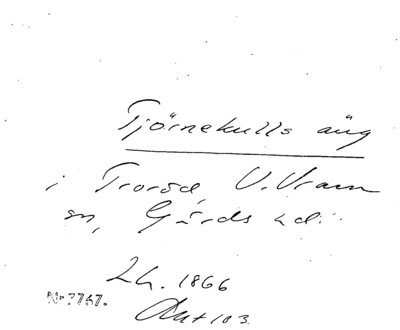 Tjörnekulls äng
i Troröd, V. Vram
sn, Gärds hd.
Lh. 1866
Nr 7767.
Akt 103.